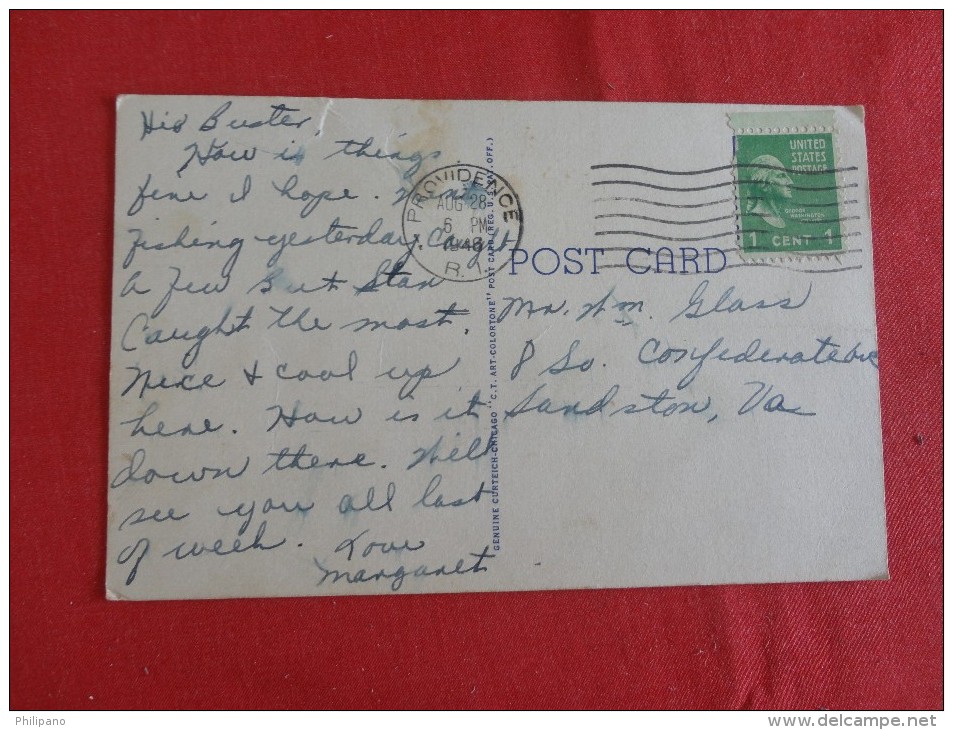 Hio Buster,
How is things
fine I hope. Went
Fishing yesterday. Caught
a few But Stan
Caught the most.
Nice & cool up
here. How is it
down there. Will
see you all last
of week. Love
Margaret
PROVIDENCE
AUG 28
6 PM
R.I.
UNITED
STATES
POSTAGE
GEORGE
WASHINGTON
1 CENT 1
POST CARD
Mr. Wm. Glass
8 So. Confederate Ave
Sandston, Va
GENUINE CURTEICH-CHICAGO "C.T. ART-COLORTONE" POST CARD (REG. U.S. PAT. OFF.)
Philipano
www.delcampe.net